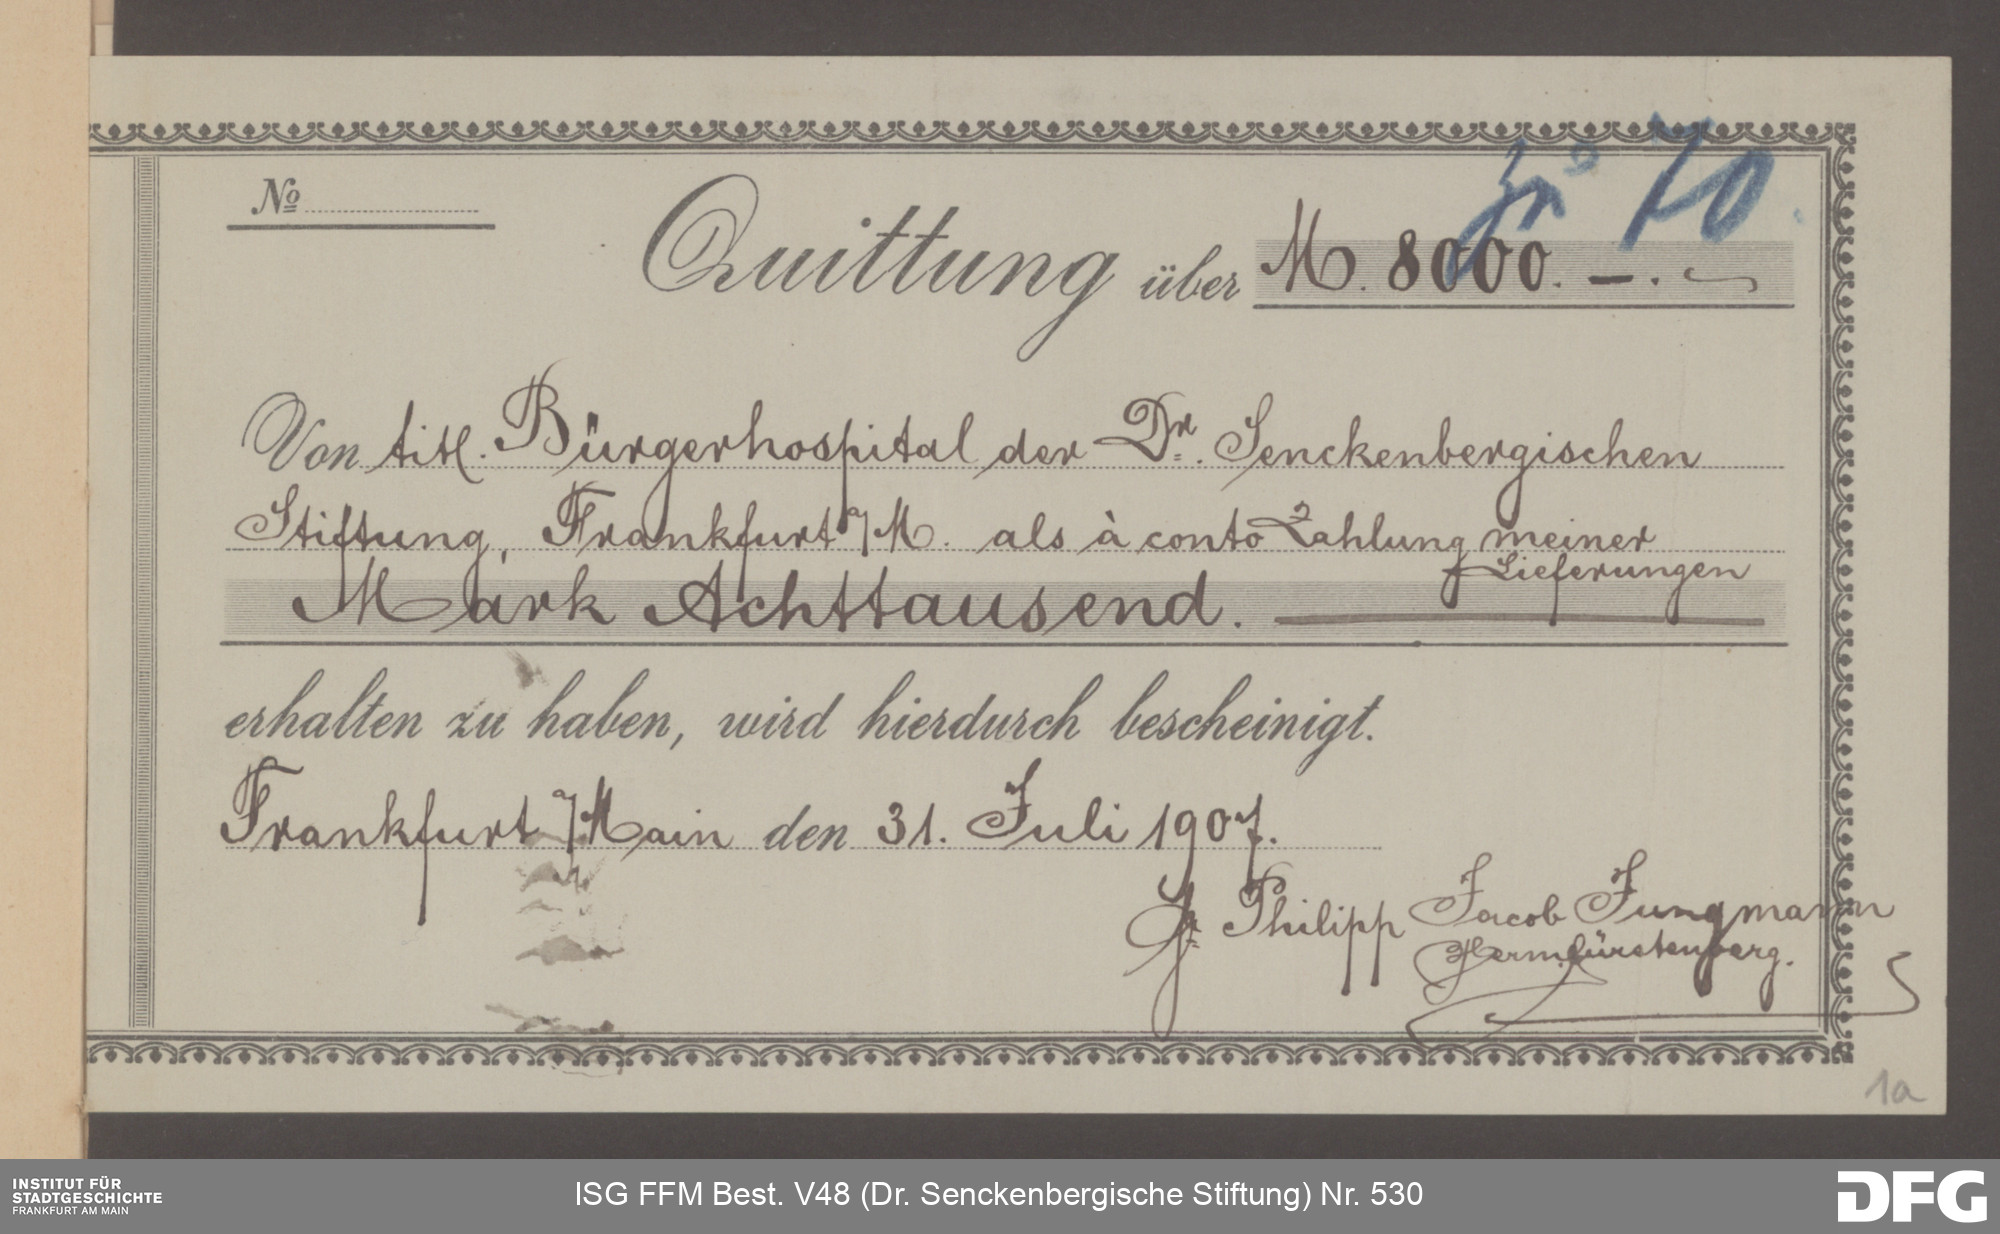 zu 70.
№
Quittung über M. 8000. —.
Von titl. Bürgerhospital der Dr. Senckenbergischen
Stiftung, Frankfurt a/M. als à conto Zahlung meiner
Lieferungen
Mark Achttausend.
erhalten zu haben, wird hierdurch bescheinigt.
Frankfurt a/Main den 31. Juli 1907.
Philipp Jacob Jungmann
Herm. Fürstenberg.
1a
INSTITUT FÜR
STADTGESCHICHTE
FRANKFURT AM MAIN
ISG FFM Best. V48 (Dr. Senckenbergische Stiftung) Nr. 530
DFG